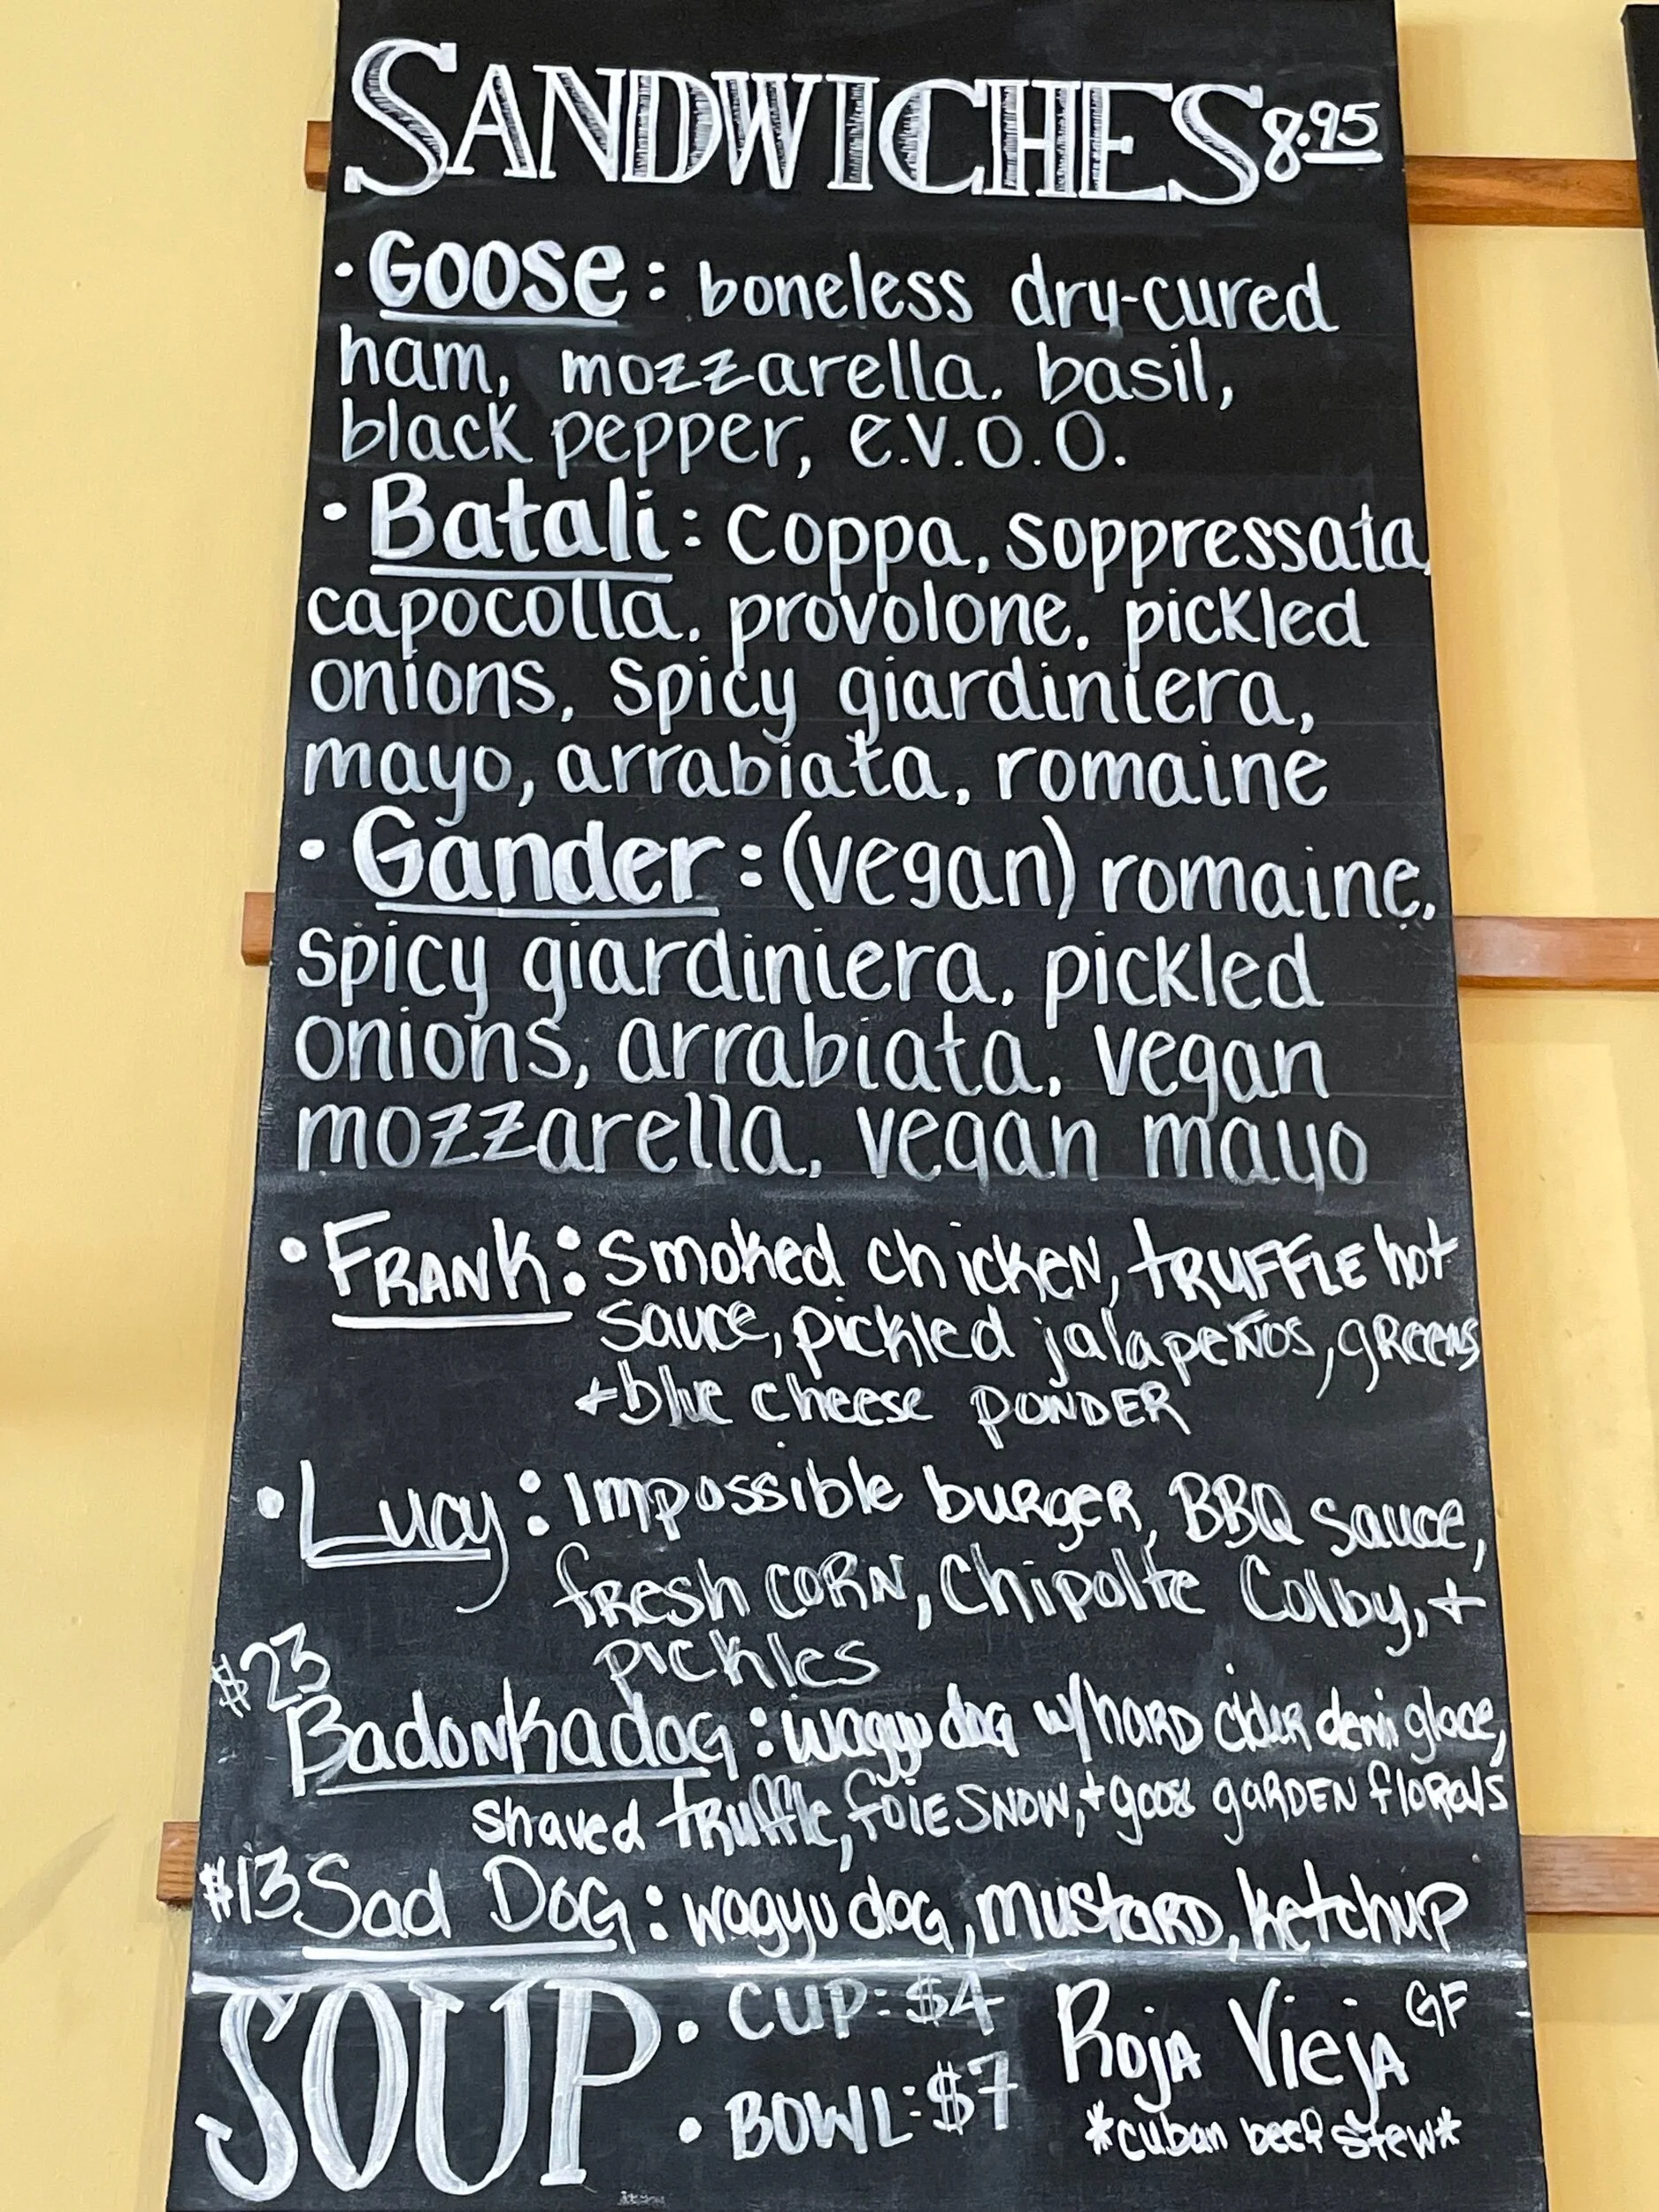 SANDWICHES 8.95
• Goose: boneless dry-cured
ham, mozzarella, basil,
black pepper, e.v.o.o.
• Batali: coppa, soppressata,
capocolla, provolone, pickled
onions, spicy giardiniera,
mayo, arrabiata, romaine
• Gander: (vegan) romaine,
spicy giardiniera, pickled
onions, arrabiata, vegan
mozzarella, vegan mayo
• FRANK: Smoked chicken, TRUFFLE hot
sauce, pickled jalapeños, greens
+ blue cheese POWDER
• Lucy: Impossible burger, BBQ sauce,
fresh CORN, Chipolte Colby, +
pickles
$23
Badonkadog: wagyu dog w/ hard cider demi glace,
shaved truffle, foie snow, + goose garden florals
$13 Sad Dog: wagyu dog, mustard, ketchup
SOUP • CUP: $4
• BOWL: $7
Roja Vieja GF
*cuban beef stew*